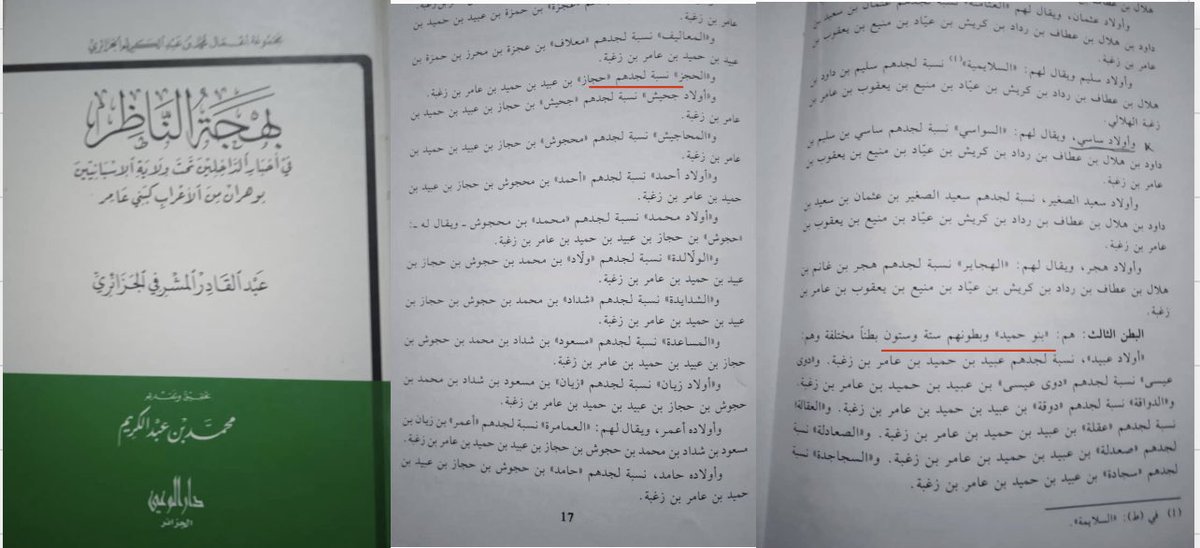 مجموعة أعمال محمد بن عبد الكريم الجزائري
بهجة الناظر
في أخبار الداخلين تحت ولاية الإسبانيين
بوهران من الأعراب كبني عامر
عبد القادر المشرفي الجزائري
تحقيق وتقديم
محمد بن عبد الكريم
دار الوعي
الجزائر
داود بن هلال بن عطاف بن رداد بن كريش بن عيّاد بن منيع بن يعقوب بن
عامر بن زغبة.
وأولاد سليم ويقال لهم: «السلايمية»(1) نسبة لجدهم سليم بن داود بن
هلال بن عطاف بن رداد بن كريش بن عيّاد بن منيع بن يعقوب بن عامر بن
زغبة الهلالي.
وأولاد ساسي، ويقال لهم: «السواسي» نسبة لجدهم ساسي بن سليم بن
داود بن هلال بن عطاف بن رداد بن كريش بن عيّاد بن منيع بن يعقوب بن
عامر بن زغبة.
وأولاد سعيد الصغير، نسبة لجدهم سعيد الصغير بن عثمان بن سعيد بن
داود بن هلال بن عطاف بن رداد بن كريش بن عيّاد بن منيع بن يعقوب بن
عامر بن زغبة.
وأولاد هجر، ويقال لهم: «الهجاير» نسبة لجدهم هجر بن غانم بن
هلال بن عطاف بن رداد بن كريش بن عيّاد بن منيع بن يعقوب بن عامر بن
زغبة.
البطن الثالث: هم: «بنو حميد» وبطونهم ستة وستون بطناً مختلفة وهم:
«أولاد عبيد»، نسبة لجدهم عبيد بن حميد بن عامر بن زغبة. و«دوى
عيسى» نسبة لجدهم «دوى عيسى» بن عبيد بن حميد بن عامر بن زغبة.
و«الدواقة» نسبة لجدهم «دوقة» بن عبيد بن حميد بن عامر بن زغبة. و«العقالة»
نسبة لجدهم «عقلة» بن عبيد بن حميد بن عامر بن زغبة. و«الصعادلة» نسبة
لجدهم «صعدلة» بن عبيد بن حميد بن عامر بن زغبة. و«السجاجدة» نسبة
لجدهم «سجادة» بن عبيد بن حميد بن عامر بن زغبة.
(1) في (ط): «السلايمة».
عامر بن زغبة.
و«المعاليف» نسبة لجدهم «معلاف» بن عجزة بن محرز بن حمزة بن
عبيد بن حميد بن عامر بن زغبة.
و«الحجز» نسبة لجدهم «حجاز» بن عبيد بن حميد بن عامر بن زغبة.
و«أولاد جحيش» نسبة لجدهم «جحيش» بن حجاز بن عبيد بن حميد بن
عامر بن زغبة.
و«المحاجيش» نسبة لجدهم «محجوش» بن حجاز بن عبيد بن حميد بن
عامر بن زغبة.
و«أولاد أحمد» نسبة لجدهم «أحمد» بن محجوش بن حجاز بن عبيد بن
حميد بن عامر بن زغبة.
و«أولاد محمد» نسبة لجدهم «محمد» بن محجوش - ويقال له -:
«حجوش» بن حجاز بن عبيد بن حميد بن عامر بن زغبة.
و«الولالدة» نسبة لجدهم «ولّاد» بن محمد بن حجوش بن حجاز بن
عبيد بن حميد بن عامر بن زغبة.
و«الشدايدة» نسبة لجدهم «شداد» بن محمد بن حجوش بن حجاز بن
عبيد بن حميد بن عامر بن زغبة.
و«المساعدة» نسبة لجدهم «مسعود» بن شداد بن محمد بن حجوش بن
حجاز بن عبيد بن حميد بن عامر بن زغبة.
و«أولاد زيان» نسبة لجدهم «زيان» بن مسعود بن شداد بن محمد بن
حجوش بن حجاز بن عبيد بن حميد بن عامر بن زغبة.
وأولاده أعمر، ويقال لهم: «العمامرة» نسبة لجدهم «أعمر» بن زيان بن
مسعود بن شداد بن محمد بن حجوش بن حجاز بن عبيد بن حميد بن عامر بن زغبة.
وأولاده حامد، نسبة لجدهم «حامد» بن حجوش بن حجاز بن عبيد بن
حميد بن عامر بن زغبة.
17